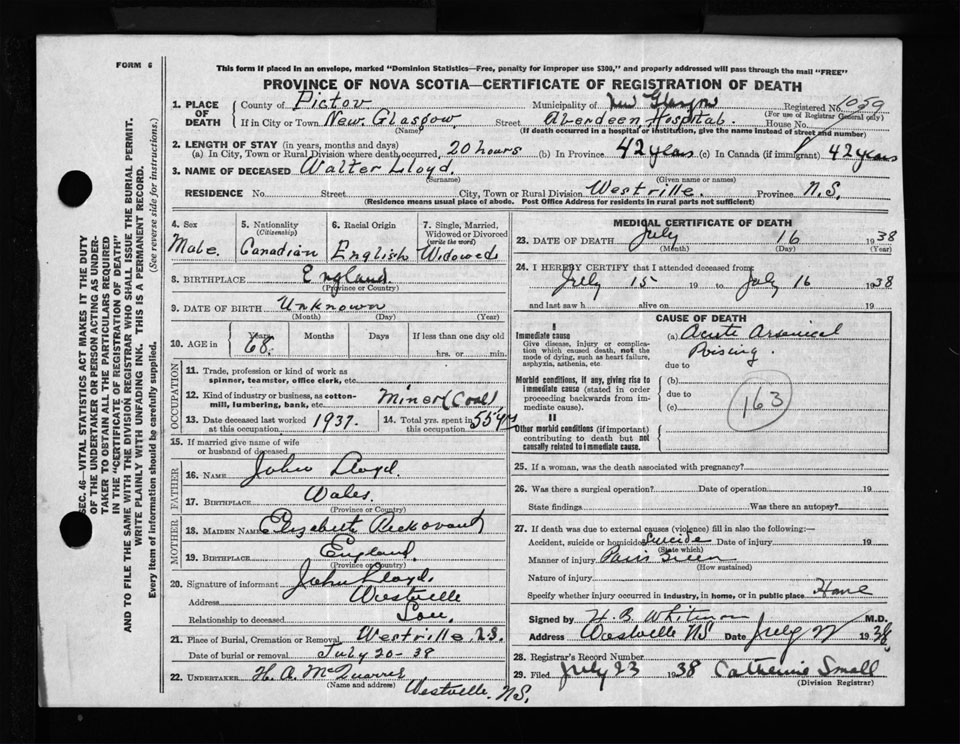 FORM 6
This form if placed in an envelope, marked "Dominion Statistics—Free, penalty for improper use $300," and properly addressed will pass through the mail "FREE"
PROVINCE OF NOVA SCOTIA—CERTIFICATE OF REGISTRATION OF DEATH
1. PLACE OF DEATH
County of Pictou Municipality of New Glasgow Registered No. 1059
(For use of Registrar General only)
If in City or Town New Glasgow Street Aberdeen Hospital. House No.
(Name) (If death occurred in a hospital or institution, give the name instead of street and number)
2. LENGTH OF STAY (in years, months and days)
(a) In City, Town or Rural Division where death occurred, 20 hours (b) In Province 42 years (c) In Canada (if immigrant) 42 years
3. NAME OF DECEASED Walter Lloyd.
(Surname) (Given name or names)
RESIDENCE No. Street City, Town or Rural Division Westville. Province N.S.
(Residence means usual place of abode. Post Office Address for residents in rural parts not sufficient)
4. Sex
Male.
5. Nationality (Citizenship)
Canadian
6. Racial Origin
English
7. Single, Married, Widowed or Divorced (write the word)
Widowed
8. BIRTHPLACE England.
(Province or Country)
9. DATE OF BIRTH Unknown
(Month) (Day) (Year)
10. AGE in Years Months Days If less than one day old
68. hrs. or min.
OCCUPATION
11. Trade, profession or kind of work as spinner, teamster, office clerk, etc.
12. Kind of industry or business, as cotton-mill, lumbering, bank, etc. Miner (Coal)
13. Date deceased last worked at this occupation 1937. 14. Total yrs. spent in this occupation 55 yrs
15. If married give name of wife or husband of deceased
FATHER
16. NAME John Lloyd.
17. BIRTHPLACE Wales.
(Province or Country)
MOTHER
18. MAIDEN NAME Elizabeth
19. BIRTHPLACE England
(Province or Country)
20. Signature of informant John Lloyd.
Address Westville
Relationship to deceased Son.
21. Place of Burial, Cremation or Removal Westville N.S.
Date of burial or removal July 20-38
22. UNDERTAKER H. A. McQuarrie
(Name and address) Westville. N.S.
MEDICAL CERTIFICATE OF DEATH
23. DATE OF DEATH July 16 1938
(Month) (Day) (Year)
24. I HEREBY CERTIFY that I attended deceased from
July 15 19 to July 16 1938
and last saw h alive on 19
CAUSE OF DEATH
I
Immediate cause
Give disease, injury or complication which caused death, not the mode of dying, such as heart failure, asphyxia, asthenia, etc.
(a) Acute Arsenical
Poising.
due to
Morbid conditions, if any, giving rise to immediate cause (stated in order proceeding backwards from immediate cause).
(b)
due to
(c)
163
II
Other morbid conditions (if important) contributing to death but not causally related to immediate cause.
25. If a woman, was the death associated with pregnancy?
26. Was there a surgical operation? Date of operation 19
State findings Was there an autopsy?
27. If death was due to external causes (violence) fill in also the following:
Accident, suicide or homicide Suicide Date of injury 19
(State which)
Manner of injury Paris Green
(How sustained)
Nature of injury
Specify whether injury occurred in industry, in home, or in public place Home
Signed by H. B. Whitman M.D.
Address Westville NS Date July 1938
28. Registrar's Record Number
29. Filed July 23 1938 Catherine Small
(Division Registrar)
SEC. 46—VITAL STATISTICS ACT MAKES IT THE DUTY
OF THE UNDERTAKER OR PERSON ACTING AS UNDER-
TAKER TO OBTAIN ALL THE PARTICULARS REQUIRED
IN THE "CERTIFICATE OF REGISTRATION OF DEATH"
AND TO FILE THE SAME WITH THE DIVISION REGISTRAR WHO SHALL ISSUE THE BURIAL PERMIT.
WRITE PLAINLY WITH UNFADING INK. THIS IS A PERMANENT RECORD.
Every item of information should be carefully supplied. (See reverse side for instructions.)